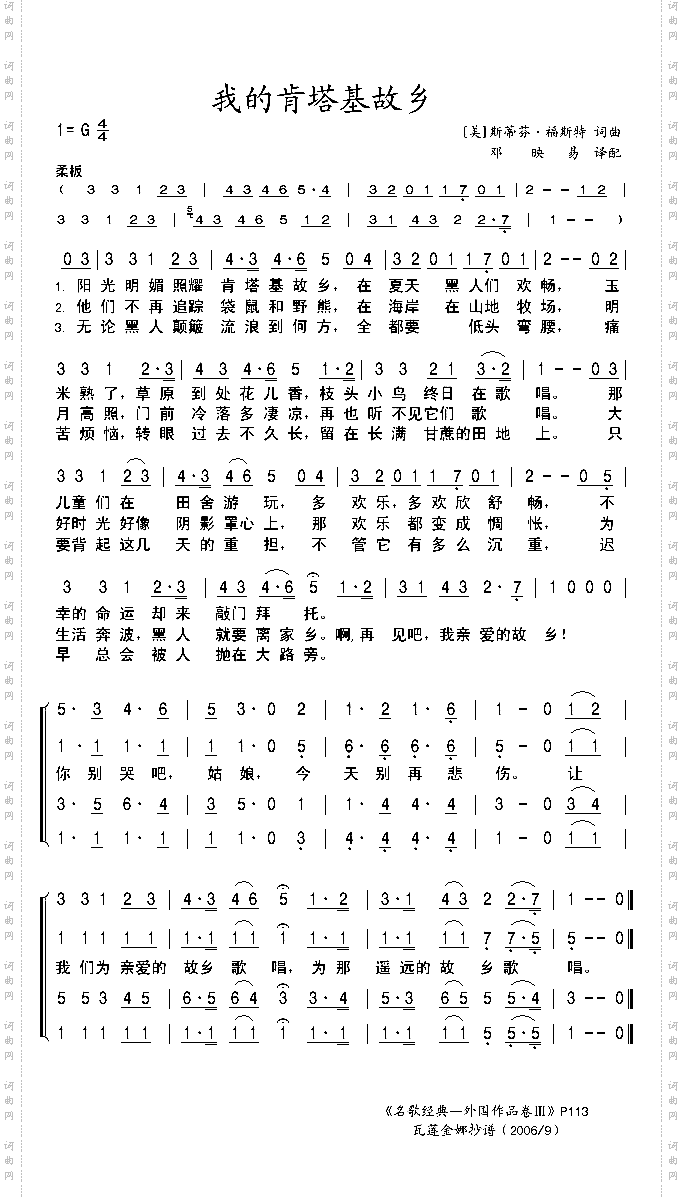 我的肯塔基故乡
1=G 4/4
[美]斯蒂芬·福斯特 词曲
邓 映 易 译配
柔板
( 3 3 1 2 3 | 4 3 4 6 5·4 | 3 2 0 1 1 7 0 1 | 2 - - 1 2 |
3 3 1 2 3 | 5 4 3 4 6 5 1 2 | 3 1 4 3 2 2·7 | 1 - - - )
0 3 | 3 3 1 2 3 | 4·3 4·6 5 0 4 | 3 2 0 1 1 7 0 1 | 2 - - 0 2 |
1. 阳光明媚照耀 肯塔基故乡，在 夏天 黑人们 欢畅， 玉
2. 他们不再追踪 袋鼠和野熊，在 海岸 在山地 牧场， 明
3. 无论黑人颠簸 流浪到何方，全 都要 低头 弯腰， 痛
3 3 1 2·3 | 4 3 4·3 5 1·2 | 3 3 2 1 3·2 | 1 - - 0 3 |
米熟了，草原 到处花儿香，枝头小鸟 终日 在歌 唱。 那
月高照，门前 冷落多凄凉，再也听 不见它们 歌 唱。 大
苦烦恼，转眼 过去不久长，留在长满 甘蔗的田地 上。 只
3 3 1 2 3 | 4·3 4 6 5 0 4 | 3 2 0 1 1 7 0 1 | 2 - - 0 5 |
儿童们在 田舍游 玩， 多 欢乐，多欢欣舒 畅， 不
好时光好像 阴影罩心上，那 欢乐 都变成惆 怅， 为
要背起这几 天的重 担，不 管它 有多么沉 重， 迟
3 3 1 2·3 | 4 3 4·6 5 1·2 | 3 1 4 3 2·7 | 1 0 0 0 |
幸的命运 却来 敲门拜 托。
生活奔波，黑人 就要离家乡。啊，再 见吧，我亲 爱的故 乡！
早 总会 被人 抛在大路旁。
5· 3 4· 6 | 5 3·0 2 | 1·2 1·6 | 1 - 0 1 2 |
1· 1 1· 1 | 1 1·0 5 | 6·6 6·6 | 5 - 0 1 1 |
你别哭吧， 姑娘，今 天别再悲 伤。 让
3· 5 6· 4 | 3 5·0 1 | 4·4 4·4 | 3 - 0 3 4 |
1· 1 1· 1 | 1 1·0 3 | 4·4 4·4 | 1 - 0 1 1 |
3 3 1 2 3 | 4·3 4 6 5 1·2 | 3·1 4 3 2 2·7 | 1 - - 0 ‖
1 1 1 1 1 | 1·1 1 1 1 1·1 | 1·1 1 1 7 7·5 | 5 - - 0 ‖
我们为亲爱的 故乡 歌 唱，为那 遥远的故 乡歌 唱。
5 5 3 4 5 | 6·5 6 4 3 3·4 | 5·3 6 6 5 5·4 | 3 - - 0 ‖
1 1 1 1 1 | 1·1 1 1 1 1·1 | 1·1 1 1 5 5·5 | 1 - - 0 ‖
《名歌经典—外国作品卷Ⅲ》P113
瓦莲金娜抄谱（2006/9）
词曲网